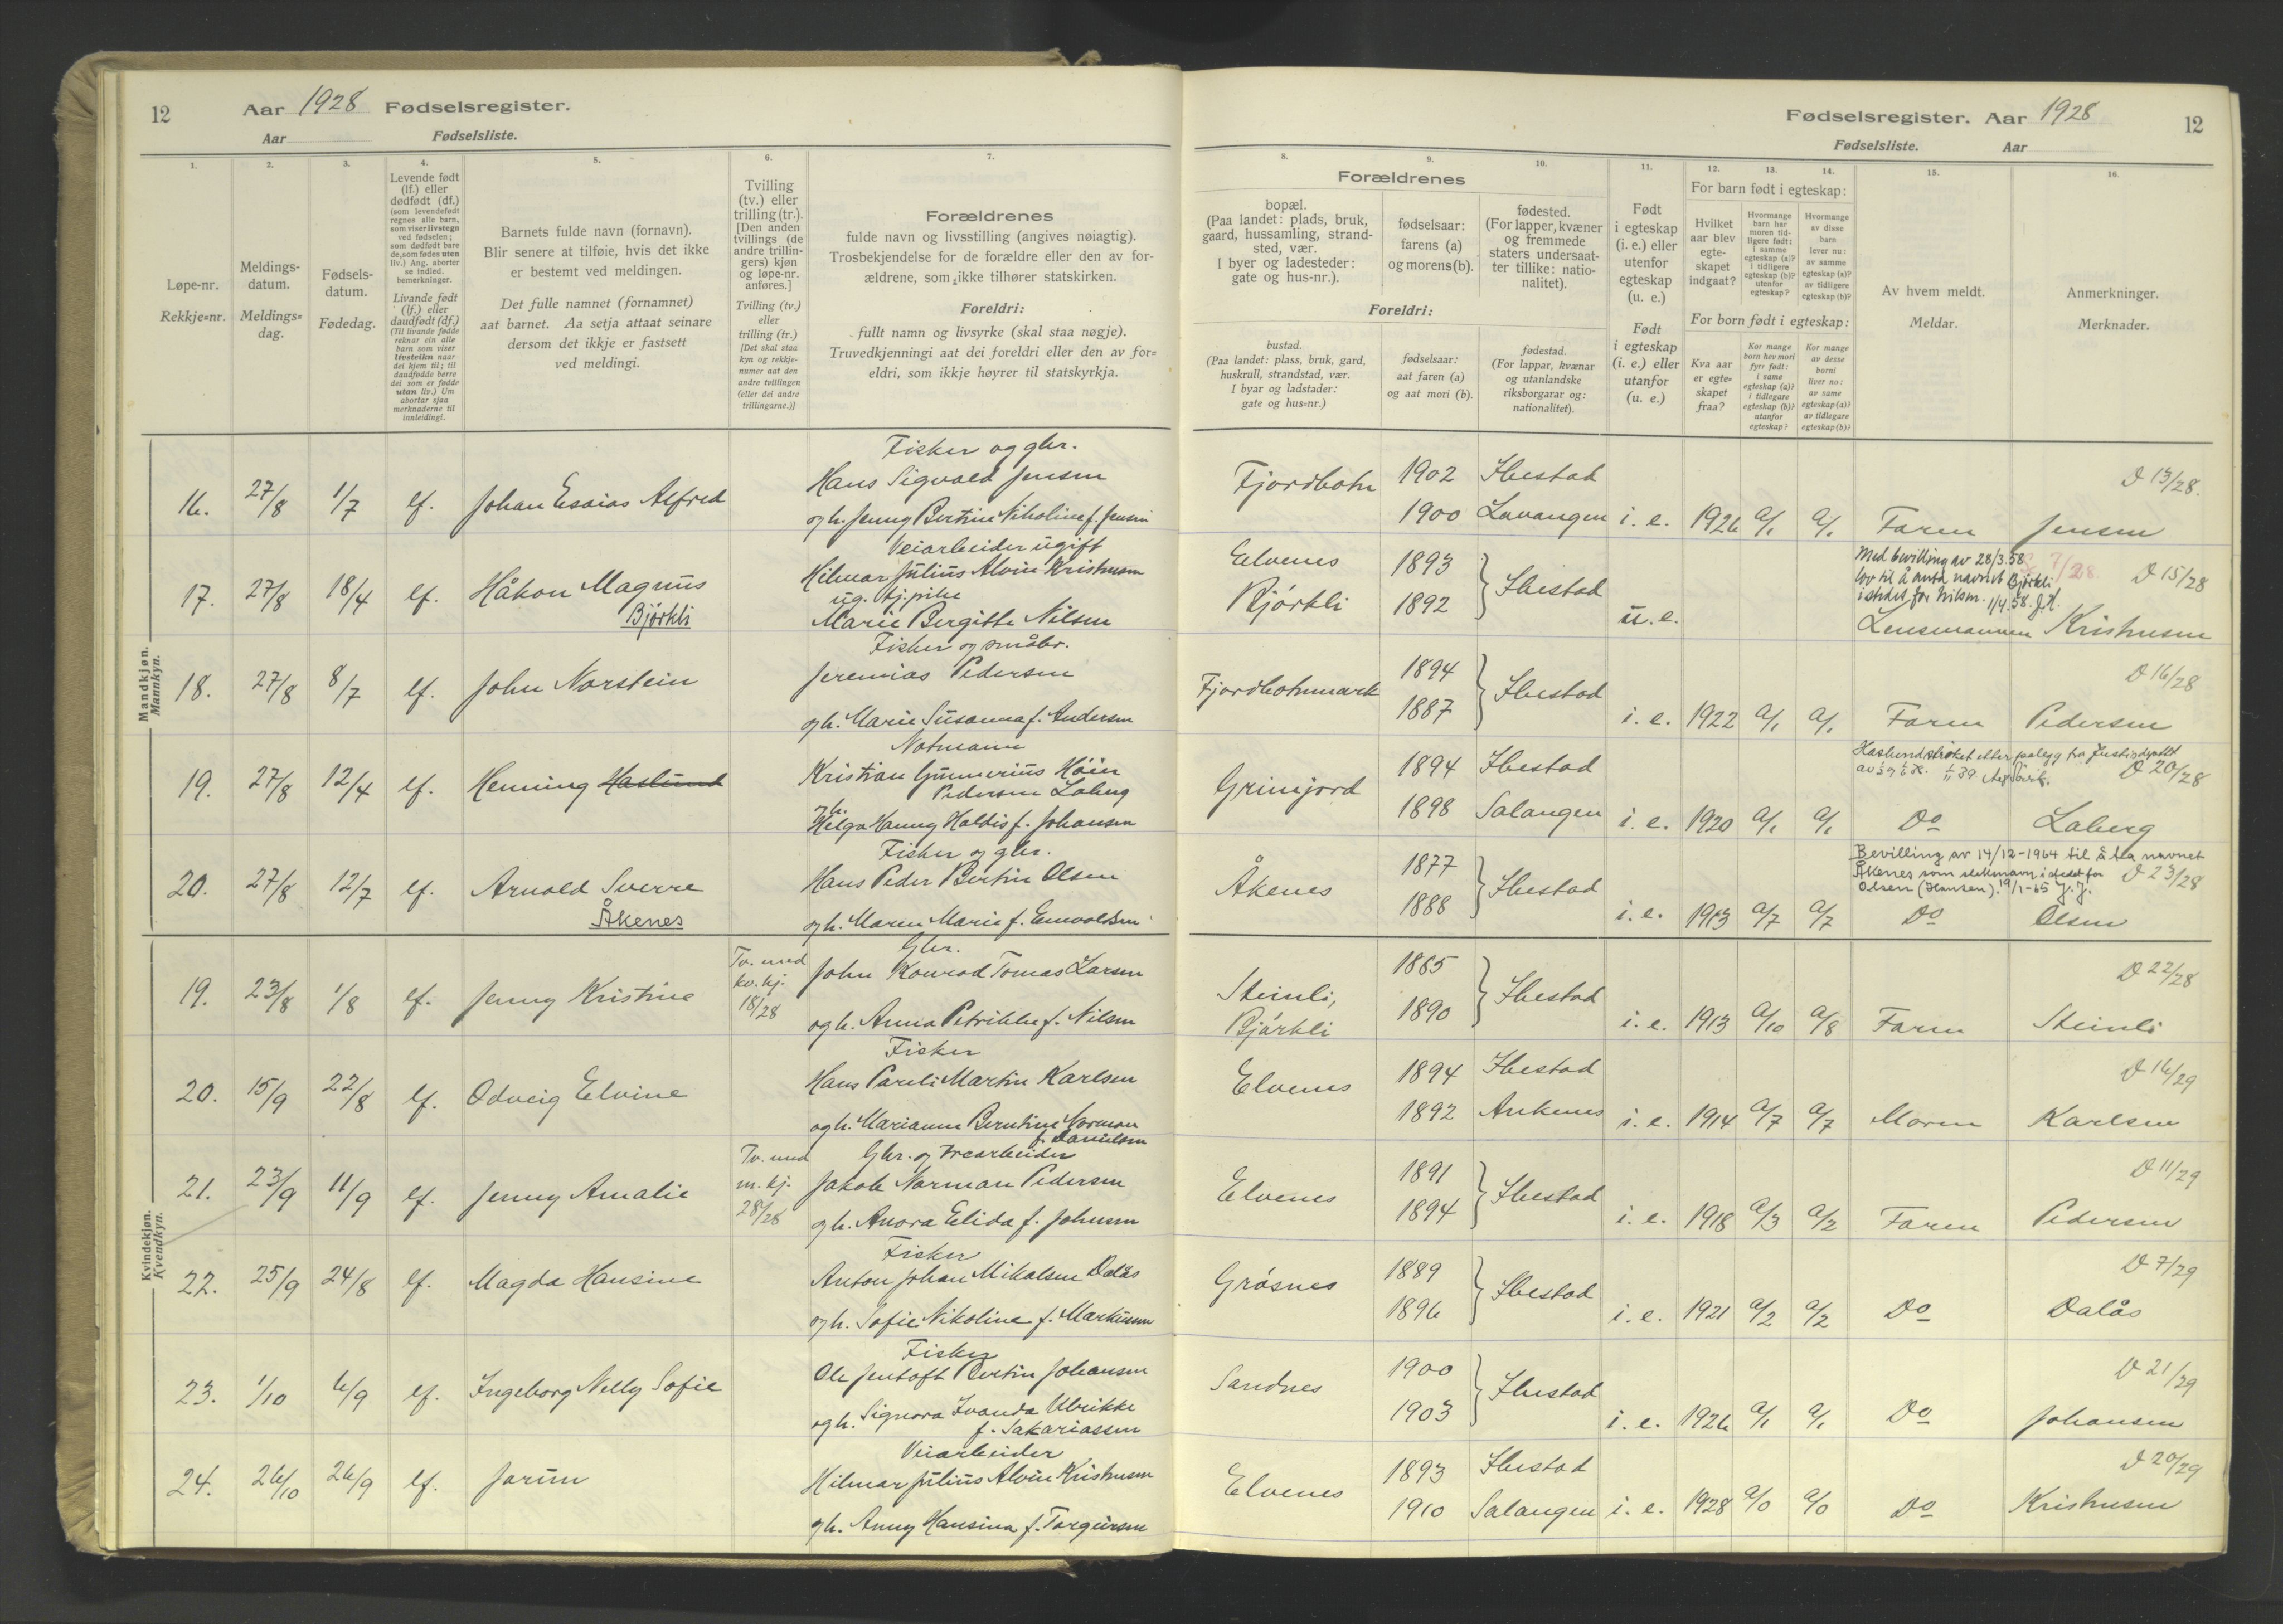 12 Aar 1928 Fødselsregister.
Aar Fødselsliste.
Fødselsregister. Aar 1928 12
Fødselsliste. Aar
1. 2. 3. 4. 5. 6. 7. 8. 9. 10. 11. 12. 13. 14. 15. 16.
Løpe-nr.
Rekkje=nr.
Meldings-
datum.
Meldings=
dag.
Fødsels-
datum.
Fødedag.
Levende født
(lf.) eller
dødfødt (df.)
(som levendefødt
regnes alle barn,
som viser livstegn
ved fødselen;
som dødfødt bare
de, som fødes uten
liv.) Ang. aborter
se indled.
bemerkninger.
Livande født
(lf.) eller
daudfødt (df.)
(Til livande fødde
reknar ein alle
barn som viser
livsteikn naar
dei kjem til; til
daudfødde berre
dei som er fødde
utan liv.) Um
abortar sjaa
merknaderne til
innleidingi.
Barnets fulde navn (fornavn).
Blir senere at tilføie, hvis det ikke
er bestemt ved meldingen.
Det fulle namnet (fornamnet)
aat barnet. Aa setja attaat seinare
dersom det ikkje er fastsett
ved meldingi.
Tvilling
(tv.) eller
trilling (tr.).
[Den anden
tvillings (de
andre trillin-
gers) kjøn
og løpe-nr.
anføres.]
Tvilling (tv.)
eller
trilling (tr.)
[Det skal staa
kyn og rekkje-
numer aat den
andre tvillingen
(eller dei andre
trillingarne.)]
Forældrenes
fulde navn og livsstilling (angives nøiagtig).
Trosbekjendelse for de forældre eller den av for-
ældrene, som ikke tilhører statskirken.
Foreldri:
fullt namn og livsyrke (skal staa nøgje).
Truvedkjenningi aat dei foreldri eller den av for=
eldri, som ikkje høyrer til statskyrkja.
Forældrenes
bopæl.
(Paa landet: plads, bruk,
gaard, hussamling, strand-
sted, vær.
I byer og ladesteder:
gate og hus-nr.).
fødselsaar:
farens (a)
og morens (b).
fødested.
(For lapper, kvæner
og fremmede
staters undersaat-
ter tillike: natio-
nalitet).
Foreldri:
bustad.
(Paa landet: plass, bruk, gard,
huskrull, strandstad, vær.
I byar og ladstader:
gate og hus=nr.)
fødselsaar:
aat faren (a)
og aat mori (b).
fødestad.
(For lappar, kvænar
og utanlandske
riksborgarar og:
nationalitet).
Født
i egteskap
(i. e.) eller
utenfor
egteskap
(u. e.)
Født
i egteskap
(i. e.) eller
utanfor
(u. e.)
For barn født i egteskap:
Hvilket
aar blev
egte-
skapet
indgaat?
Hvormange
barn har
moren tid-
ligere født:
i samme
egteskap (a)?
i tidligere
egteskap (b)?
utenfor
egteskap?
Hvormange
av disse
barn
lever nu:
av samme
egteskap (a)?
av tidligere
egteskap (b)?
For born født i egteskap:
Kva aar
er egte=
skapet
fraa?
Kor mange
born hev mori
fyrr født:
i same
egteskap (a)?
i tidlegare
egteskap (b)?
utanfor
egteskap?
Kor mange
av desse
borni
liver no:
av same
egteskap (a)?
av tidlegare
egteskap (b)?
Av hvem meldt.
Meldar.
Anmerkninger.
Merknader.
Mandkjøn.
Mannkyn.
Fisker og gbr.
16. 27/8 1/7 lf. Johan Esaias Alfred Hans Sigvald Jensen Fjordbotn 1902 Ibestad D 13/28.
og h. Jenny Bertine Nikoline f. Jensen 1900 Lavangen i. e. 1926 a/1 a/1 Faren Jensen
Veiarbeider ugift
17. 27/8 18/4 lf. Håkon Magnus Hilmar Julius Alvin Kristensen Elvenes 1893 Ibestad
Bjørkli ug. tj.pike
Marie Bergitte Nilsen Bjørkli 1892 u. e. Lensmannen Kristensen
Med bevilling av 28/3.58 7/28. D 15/28
lov til å anta navnet Bjørkli
istedet for Nilsen. 1/4.58. J.H.
Fisker og småbr.
18. 27/8 8/7 lf. John Norstein Jeremias Pedersen Fjordbotnmark 1894 Ibestad D 16/28
og h. Marie Susanna f. Andersen 1887 i. e. 1922 a/1 a/1 Faren Pedersen
Notmann
19. 27/8 12/4 lf. Henning Haslund Kristian Gunnerius Høier Grimjord 1894 Ibestad
Pedersen Laberg
og h.
Helga Hanny Haldis f. Johansen 1898 Salangen i. e. 1920 a/1 a/1 Do Laberg
Haslund strøket etter pålegg fra Justisdeptet
D 20/28
Fisker og gbr.
20. 27/8 12/7 lf. Arnold Sverre Hans Peder Bertin Olsen Åkenes 1877 Ibestad
Åkenes
og h. Maren Marie f. Enevoldsen 1888 i. e. 1913 a/7 a/7 Do Olsen
Bevilling av 14/12-1964 til å ta navnet
Åkenes som slektnavn i stedet for D 23/28
Olsen (Hansen). 19/1-65 J.J.
Kvindekjøn.
Kvendkyn.
Gbr.
19. 23/8 1/8 lf. Jenny Kristine Tv. med kv. kj. 18/28 John Konrad Tomas Larsen Steinli, 1885 Ibestad D 22/28
og h. Anna Petrikke f. Nilsen Bjørkli 1890 i. e. 1913 a/10 a/8 Faren Steinli
Fisker
20. 15/9 22/8 lf. Odveig Elvine Hans Pareli Martin Karlsen Elvenes 1894 Ibestad D 16/29
og h. Marianne Berntine Norman 1892 Ankenes i. e. 1914 a/7 a/7 Moren Karlsen
f. Danielsen
Gbr. og trearbeider
21. 23/9 11/9 lf. Jenny Amalie Tv. med m. kj. 28/28 Jakob Norman Pedersen Elvenes 1891 Ibestad D 11/29
og h. Anora Elida f. Johnsen 1894 i. e. 1918 a/3 a/2 Faren Pedersen
Fisker
22. 25/9 24/8 lf. Magda Hansine Anton Johan Mikalsen Dalås Grøsnes 1889 Ibestad D 7/29
og h. Sofie Nikoline f. Markussen 1896 i. e. 1921 a/2 a/2 Do Dalås
Fisker
23. 1/10 6/9 lf. Ingeborg Nelly Sofie Ole Jentoft Bertin Johansen Sandnes 1900 Ibestad D 21/29
og h. Signora Ivanda Ulrikke 1903 i. e. 1926 a/1 a/1 Do Johansen
f. Sakariassen
Veiarbeider
24. 26/10 26/9 lf. Jorun Hilmar Julius Alvin Kristensen Elvenes 1893 Ibestad D 20/29
og h. Anny Hansina f. Torgeirsen 1910 Salangen i. e. 1928 a/0 a/0 Do Kristensen